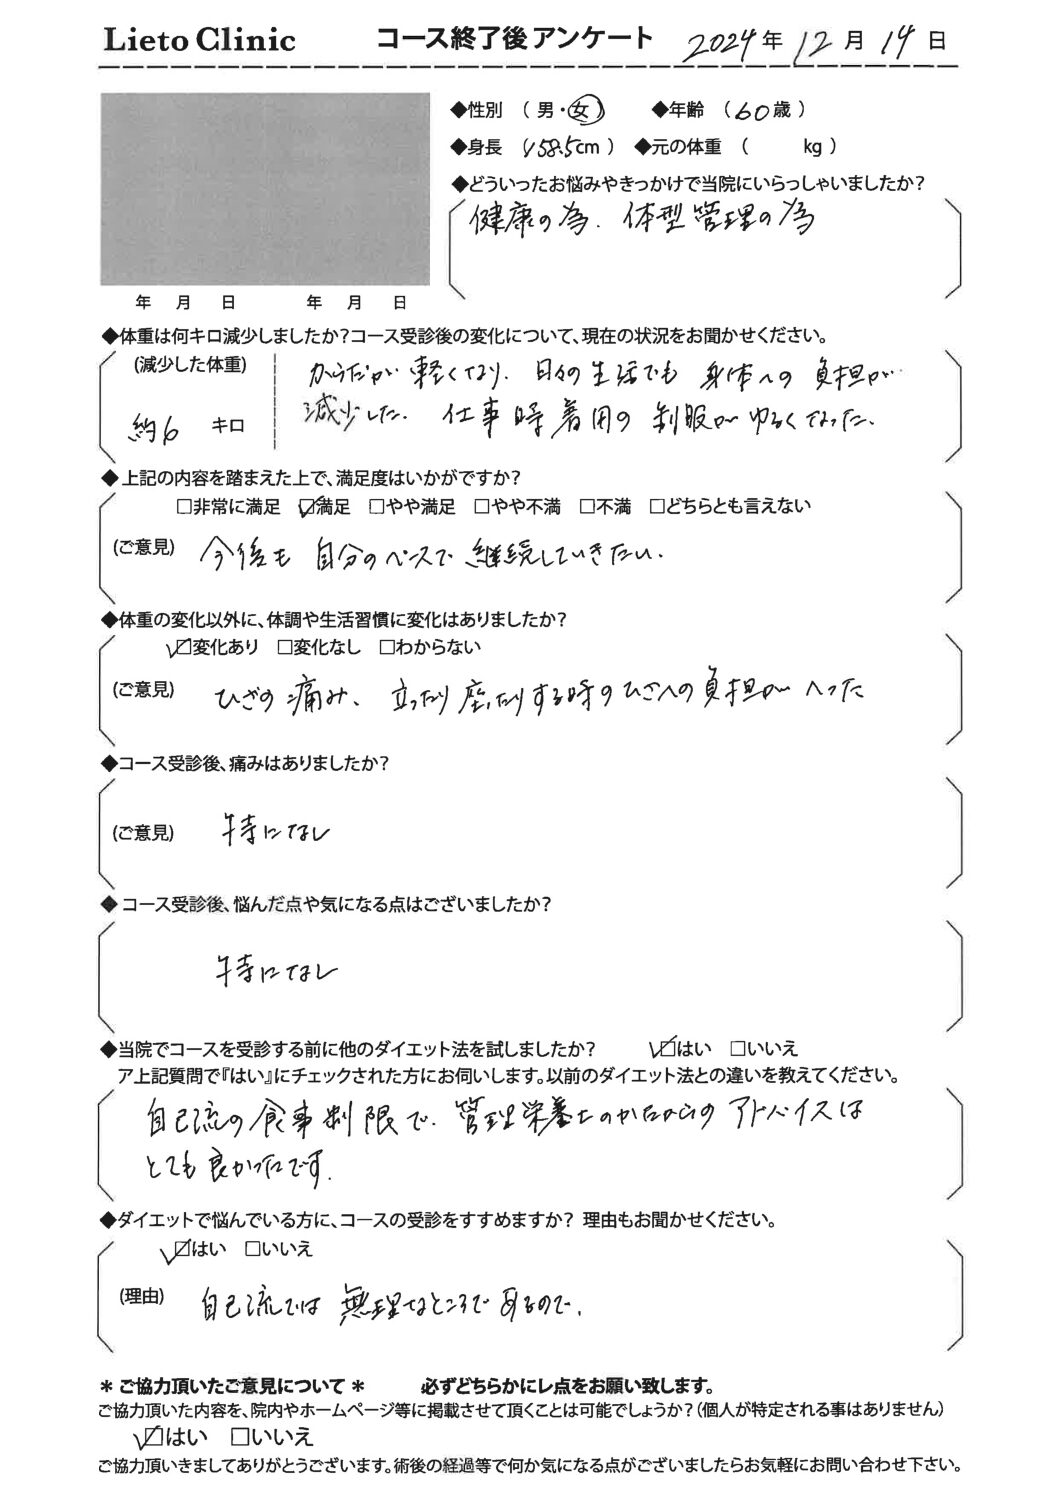 Lieto Clinic コース終了後アンケート 2024年12月14日
◆性別 (男・女) ◆年齢 (60歳)
◆身長 (158.5cm) ◆元の体重 ( kg)
◆どういったお悩みやきっかけで当院にいらっしゃいましたか?
健康の為、体型管理の為
年 月 日 年 月 日
◆体重は何キロ減少しましたか?コース受診後の変化について、現在の状況をお聞かせください。
(減少した体重) からだが軽くなり、日々の生活でも身体への負担が
減少した。仕事時着用の制服がゆるくなった。
約6 キロ
◆上記の内容を踏まえた上で、満足度はいかがですか?
□非常に満足 ☑満足 □やや満足 □やや不満 □不満 □どちらとも言えない
(ご意見) 今後も自分のペースで継続していきたい。
◆体重の変化以外に、体調や生活習慣に変化はありましたか?
☑変化あり □変化なし □わからない
(ご意見) ひざの痛み、立ったり座ったりする時のひざへの負担がへった
◆コース受診後、痛みはありましたか?
(ご意見) 特になし
◆コース受診後、悩んだ点や気になる点はございましたか?
特になし
◆当院でコースを受診する前に他のダイエット法を試しましたか? ☑はい □いいえ
ア上記質問で『はい』にチェックされた方にお伺いします。以前のダイエット法との違いを教えてください。
自己流の食事制限で、管理栄養士のかたからのアドバイスは
とても良かったです。
◆ダイエットで悩んでいる方に、コースの受診をすすめますか? 理由もお聞かせください。
☑はい □いいえ
(理由) 自己流では無理なところであるので、
＊ご協力頂いたご意見について＊ 必ずどちらかにレ点をお願い致します。
ご協力頂いた内容を、院内やホームページ等に掲載させて頂くことは可能でしょうか?(個人が特定される事はありません)
☑はい □いいえ
ご協力頂いきましてありがとうございます。術後の経過等で何か気になる点がございましたらお気軽にお問い合わせ下さい。